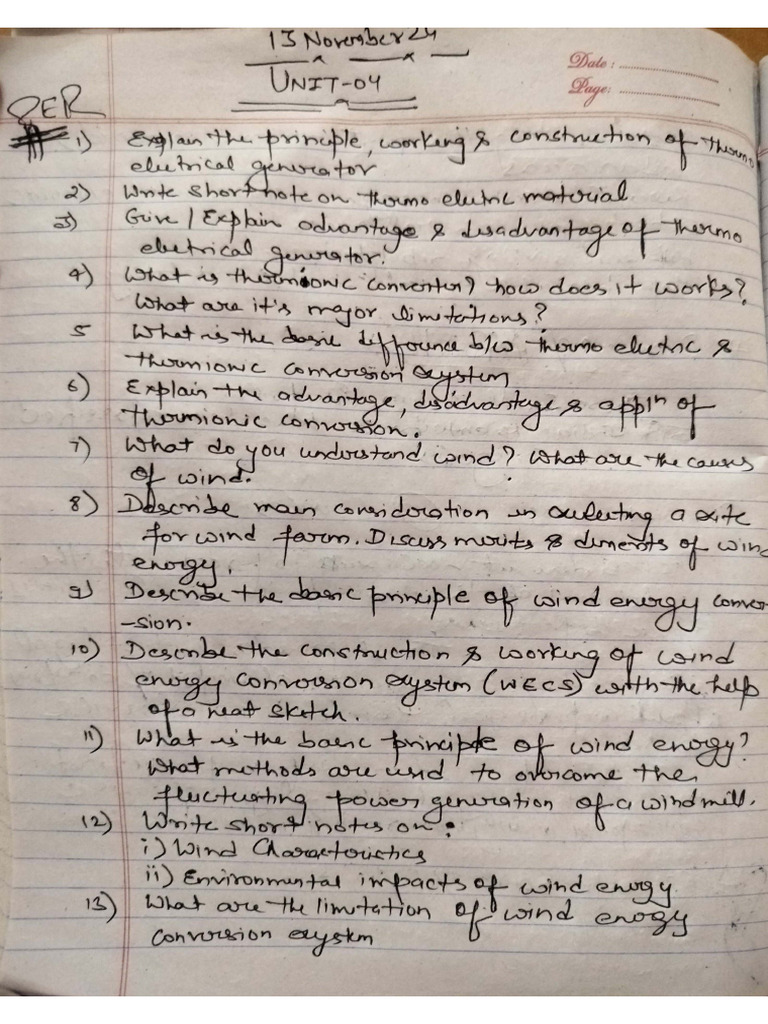 13 November 24
UNIT-04
Date :
Page:
PER
1) Explain the principle, working & construction of thermo
electrical generator
2) Write short note on thermo elutric material
3) Give / Explain advantage & disadvantage of thermo
electrical generator.
4) What is thermionic converter? how does it works?
What are it's major limitations?
5 What is the basic difference b/w thermo electric &
thermionic conversion system
6) Explain the advantage, disadvantage & appln of
thermionic conversion.
7) What do you understand wind? What are the causes
of wind.
8) Describe main consideration in selecting a site
for wind farm. Discuss merits & dimerits of wind
energy.
9) Describe the basic principle of wind energy conver-
-sion.
10) Describe the construction & working of wind
energy conversion system (WECS) with the help
of a neat sketch.
11) What is the basic principle of wind energy?
What methods are used to overcome the
fluctuating power generation of a windmill.
12) Write short notes on :
i) Wind Characteristics
ii) Environmental impacts of wind energy
13) What are the limitation of wind energy
conversion system